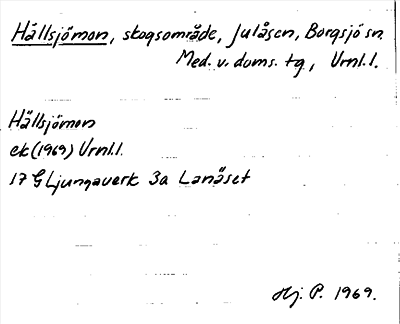 Hällsjömon, skogsområde, Julåsen, Borgsjö sn
Med. v. doms. tg, Vrnl.l.
Hällsjömon
ek (1969) Vrnl.l.
17 G Ljungaverk 3a Lanäset
Hj. P. 1969.